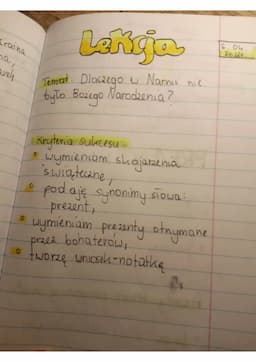 Lekcja
6.04
Temat: Dlaczego w Narnii nie
było Bożego Narodzenia?
Kryteria sukcesu:
wymieniam skojarzenia
świąteczne,
podaję synonimy słowa:
prezent,
wymieniam prezenty otrzymane
przez bohaterów,
tworzę wniosek-notatkę